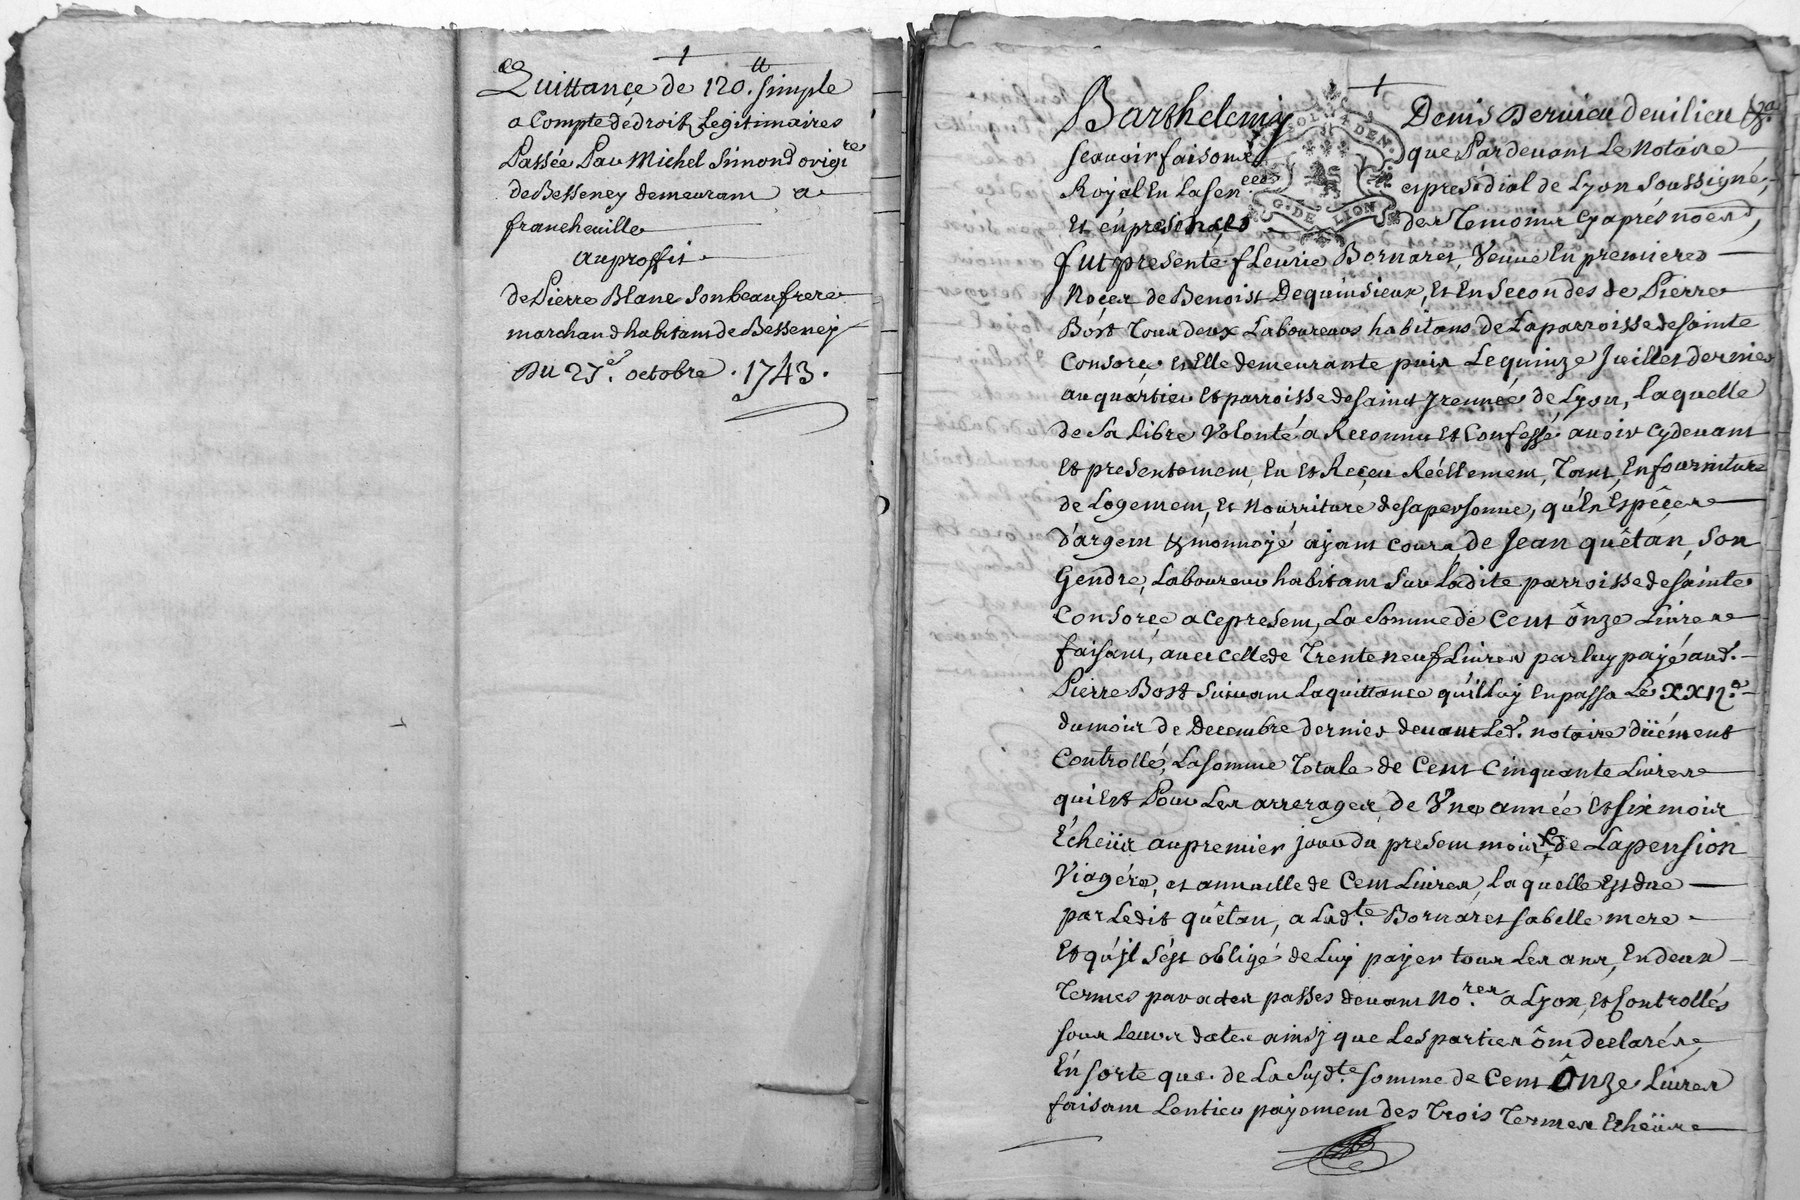 Quittance de 120.tt simple
a Compte de droits Legitimaires
Passée Par Michel Simond origire
de Besseney demeurant a
francheville
au proffit
de Pierre Blanc son beaufrere
marchand habitant de Besseney
Du 27e. octobre . 1743 .
Barthelemy Denis Dervieu de vilieu &a.
scavoir faisons que Pardevant Le Notaire
Royal En La Senée. et presidial de Lyon Soussigné,
Et en presences des Temoins Cy aprés noés,
fut presente fleurie Bornaret, Veuve En premieres
Noces de Benoist Dequinsieux, et En Secondes de Pierre
Bost Tous deux Laboureurs habitans de La parroisse de Sainte
Consorçe et Elle demeurante puis Le quinze Jüillet dernier
au quartier et parroisse de Saint Jrennée de Lyon, Laquelle
de Sa Libre Volonté a Reconnu et Confessé avoir cydevant
Et presentement, Eu et Reçeu Réellement, Tant, En fourniture
de Logement, et Nourriture de sa personne, qu'En Espêces
d'argent & monnoyé ayant cours, de Jean quêtan, Son
Gendre, Laboureur habitant Sur Ladite parroisse de Sainte
Consorçe a ce present, La Somme de Cent ônze Livres
faisant, avec celle de Trente neuf Livres par luy payé aud.
Pierre Bost Suivant La quittance qu'il Luy En passa Le XXII.e
du mois de Decembre dernier devant Led. notaire düément
Controllé, La somme Totale de Cent Cinquante Livres
qui Est Pour Les arrerages de Vne année Et six mois
Echeüs au premier jour du present mois de La pension
Viagére, et annuelle de Cent Livres, laquelle Est due
par Ledit quêtan, a Lad.te Bornaret sa belle mere
Et qu'jl s'est obligé de Luy payer tous Les ans, En deux
Termes par actes passes devant No.res a Lyon, et Controllés
sous Leurs dates ainsj que Les parties ônt declarées,
En sorte que de La Susd.te somme de Cent Ônze Livres
faisant L'entier payement des Trois Termes Echeüs
G. DE LION